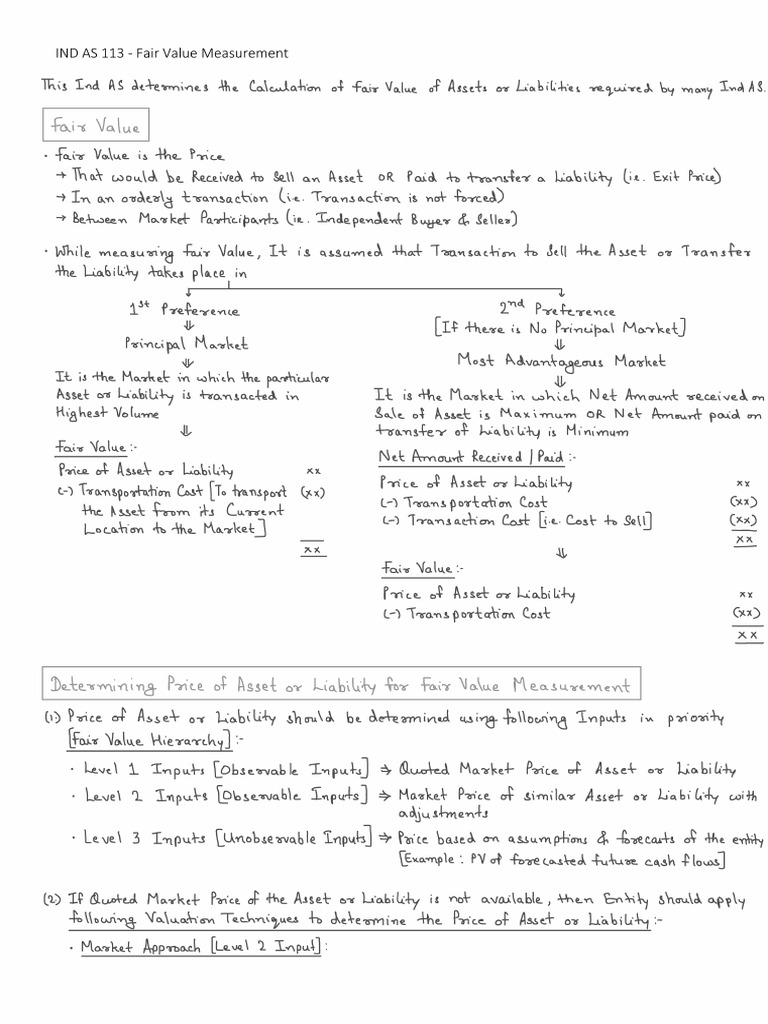 IND AS 113 - Fair Value Measurement
This Ind AS determines the Calculation of Fair Value of Assets or Liabilities required by many Ind AS.
Fair Value
• Fair Value is the Price
→ That would be Received to Sell an Asset OR Paid to transfer a Liability (i.e. Exit Price)
→ In an orderly transaction (i.e. Transaction is not forced)
→ Between Market Participants (i.e. Independent Buyer & Seller)
• While measuring Fair Value, It is assumed that Transaction to Sell the Asset or Transfer
the Liability takes place in
1st Preference
⇓
Principal Market
⇓
It is the Market in which the particular
Asset or Liability is transacted in
Highest Volume
⇓
Fair Value:-
Price of Asset or Liability xx
(-) Transportation Cost [To transport (xx)
the Asset from its Current
Location to the Market]
xx
2nd Preference
[If there is No Principal Market]
⇓
Most Advantageous Market
⇓
It is the Market in which Net Amount received on
Sale of Asset is Maximum OR Net Amount paid on
transfer of Liability is Minimum
Net Amount Received / Paid:-
Price of Asset or Liability xx
(-) Transportation Cost (xx)
(-) Transaction Cost [i.e. Cost to Sell] (xx)
xx
⇓
Fair Value:-
Price of Asset or Liability xx
(-) Transportation Cost (xx)
xx
Determining Price of Asset or Liability for Fair Value Measurement
(1) Price of Asset or Liability should be determined using following Inputs in priority
[Fair Value Hierarchy]:-
• Level 1 Inputs [Observable Inputs] ⇒ Quoted Market Price of Asset or Liability
• Level 2 Inputs [Observable Inputs] ⇒ Market Price of similar Asset or Liability with
adjustments
• Level 3 Inputs [Unobservable Inputs] ⇒ Price based on assumptions & forecasts of the entity
[Example: PV of forecasted future cash flows]
(2) If Quoted Market Price of the Asset or Liability is not available, then Entity should apply
following Valuation Techniques to determine the Price of Asset or Liability:-
• Market Approach [Level 2 Input]: